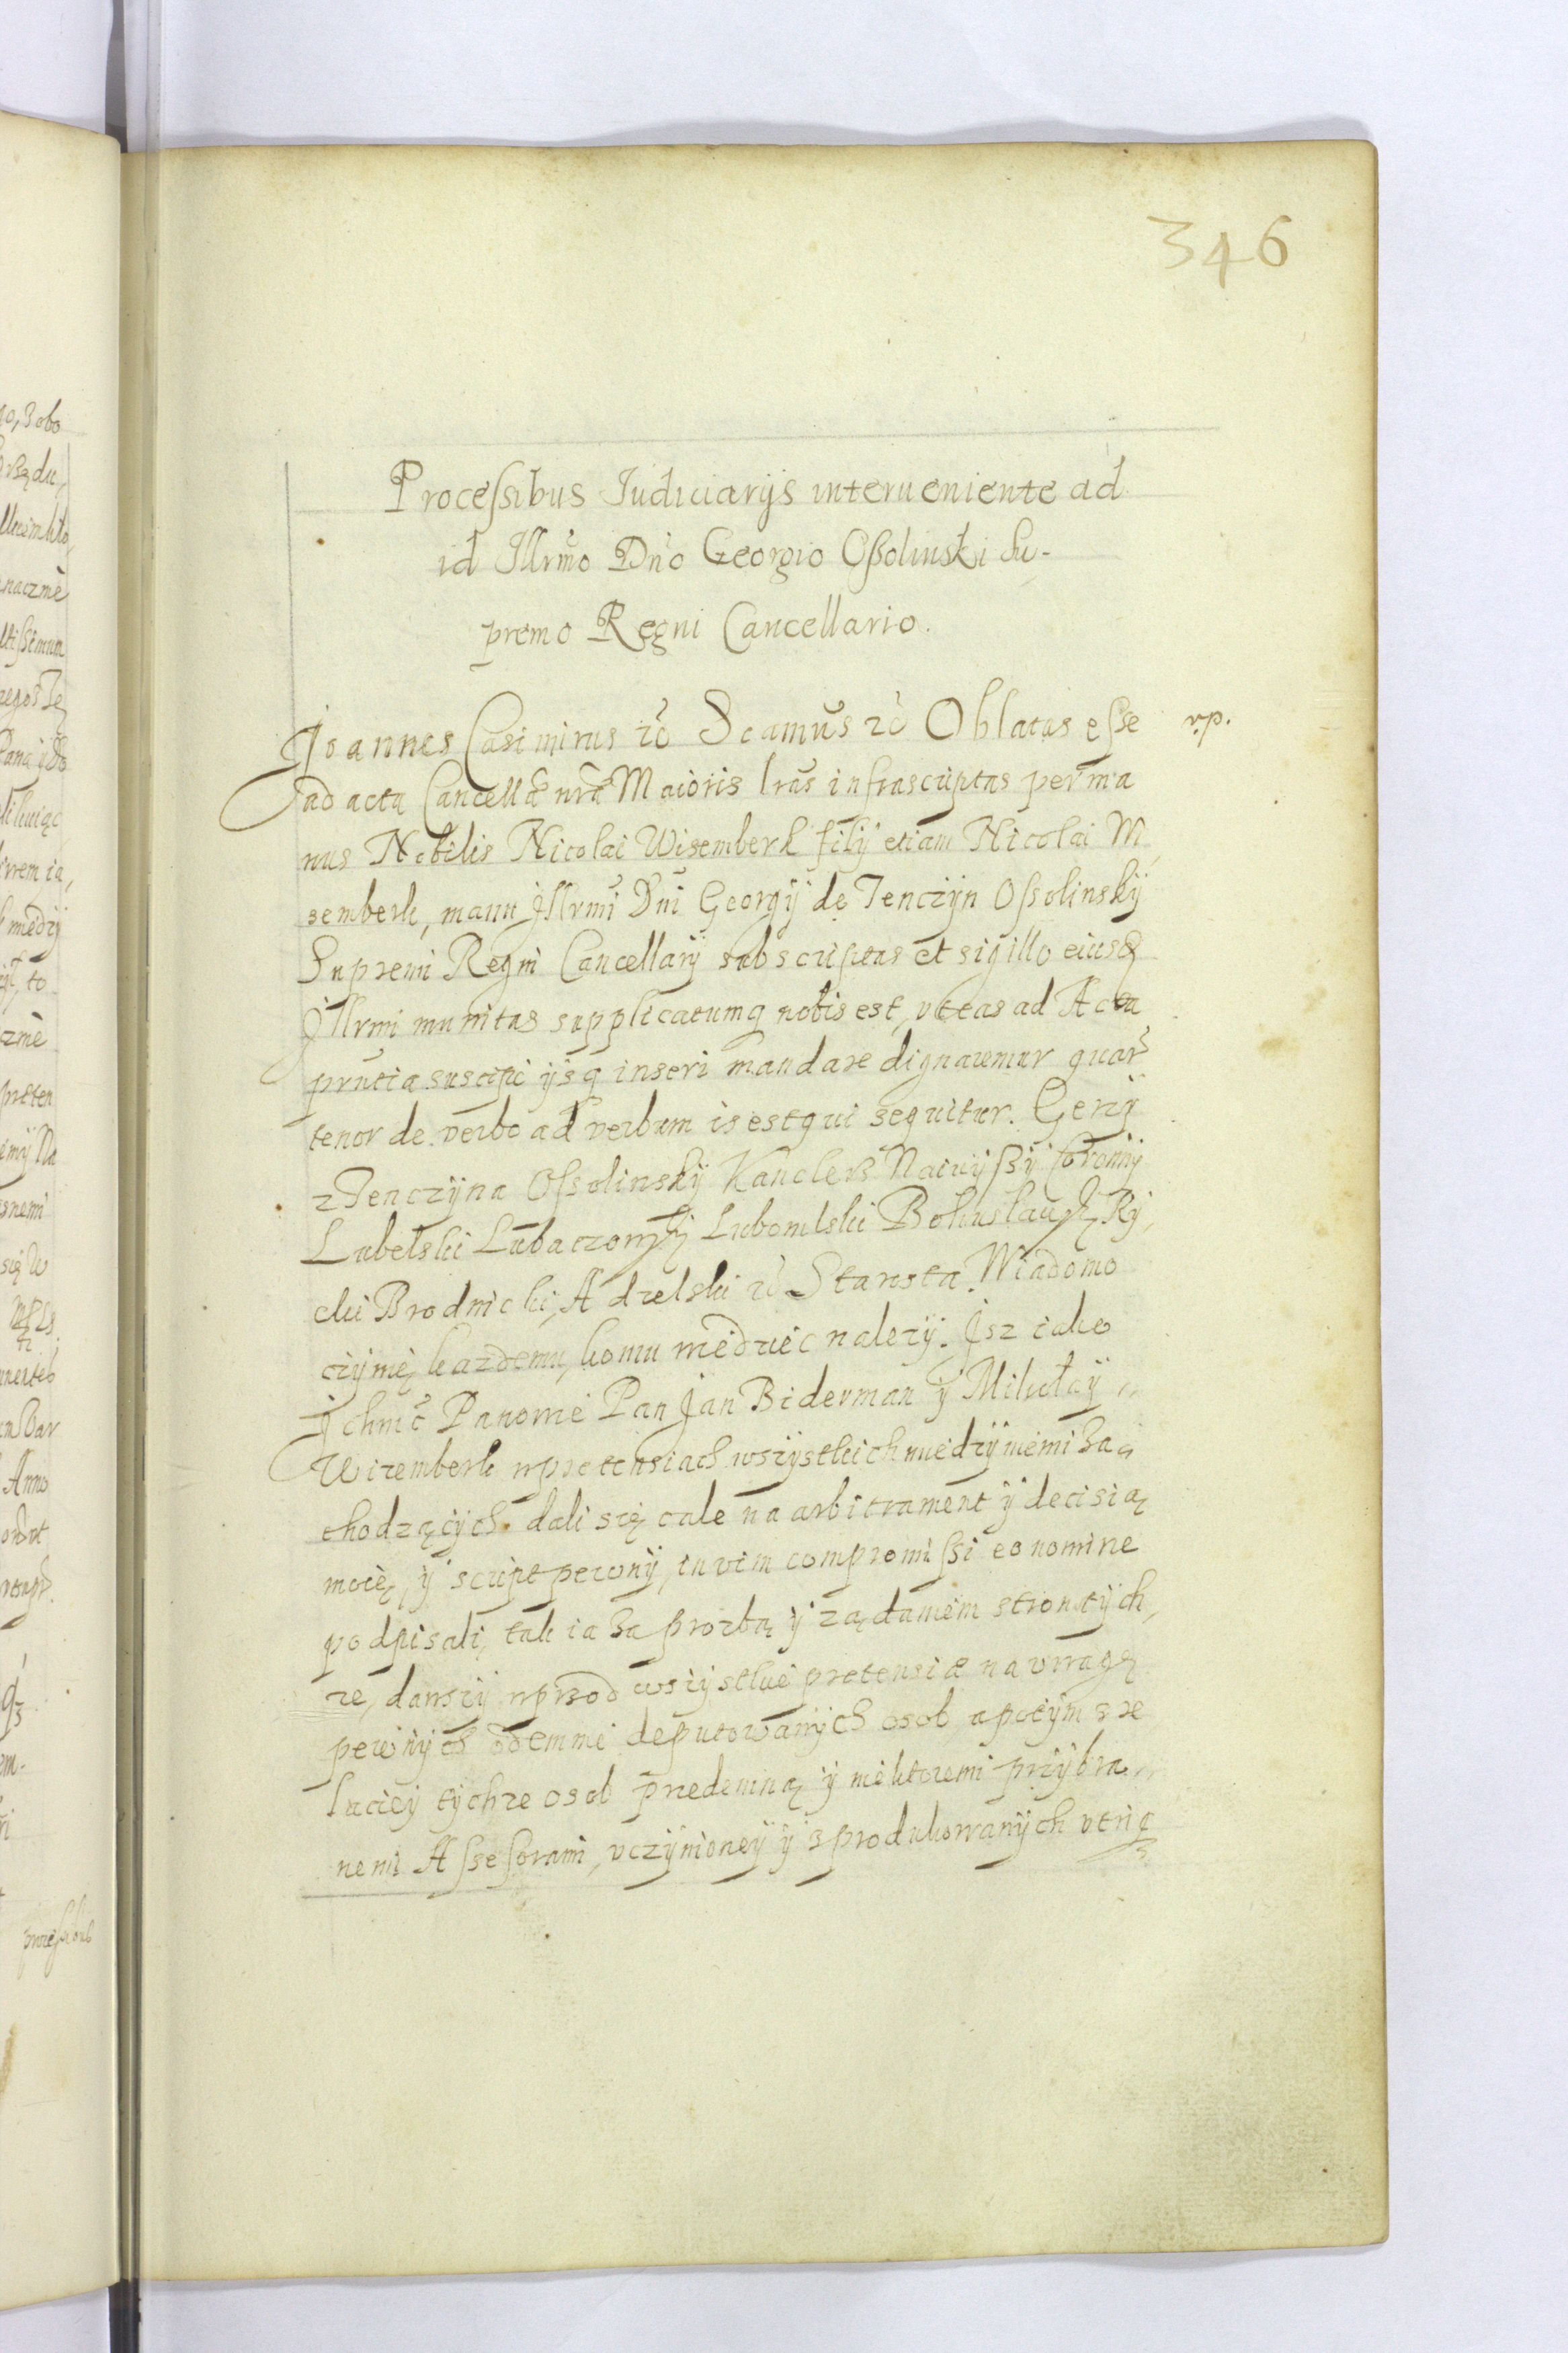 346
Processibus Iudiciarijs interueniente ad
id Illrmo Dno Georgio Ossolinski Su-
premo Regni Cancellario.
Joannes Casimirus etc Scamus etc Oblatas esse vp.
ad acta Cancellae nrae Maioris lras infrascriptas per ma
nus Nobilis Nicolai Wisemberk filij etiam Nicolai
semberk, manu Jllrmi Dni Georgij de Tenczyn Ossolinskÿ
Supremi Regni Cancellarij subscriptas et sigillo eiusd
Jllrmi munitas supplicatumq nobis est, vt eas ad Acta
prntia suscipi ijsq inseri mandare dignaremur quar
tenor de verbo ad verbum is est qui sequitur. Gerzÿ
z Tenczÿna Ossolinskÿ Kanclerz Naiwÿssÿ Koronnÿ
Lubelski Lubaczowski Lubomlski Bohuslauski Rÿ,
cki Brodnicki, Adzelski etc Starosta. Wiadomo
czÿnię kazdemu, komu wiedziec nalezÿ. Jsz iako
Jchmc Panowie Pan Jan Biderman ÿ Mikołaÿ
Wizemberk w pretensiach wszÿstkich miedzÿ niemi za,
chodzącÿch dali się cale na arbitrament ÿ decisią
moię, ÿ script pewnÿ, in vim compromissi eo nomine
podpisali, tak ia za prozbą ÿ ządaniem stron tÿch,
ze, dawszÿ wprzod wszÿstkie pretensiae na vwagę
pewnÿch odemnie deputowanÿch osob, a potÿm z re
laciey tÿchze osob przedemną ÿ niektoremi przÿbra,
nemi Assessorami, vczÿnioneÿ ÿ z produkowanÿch vtrinq